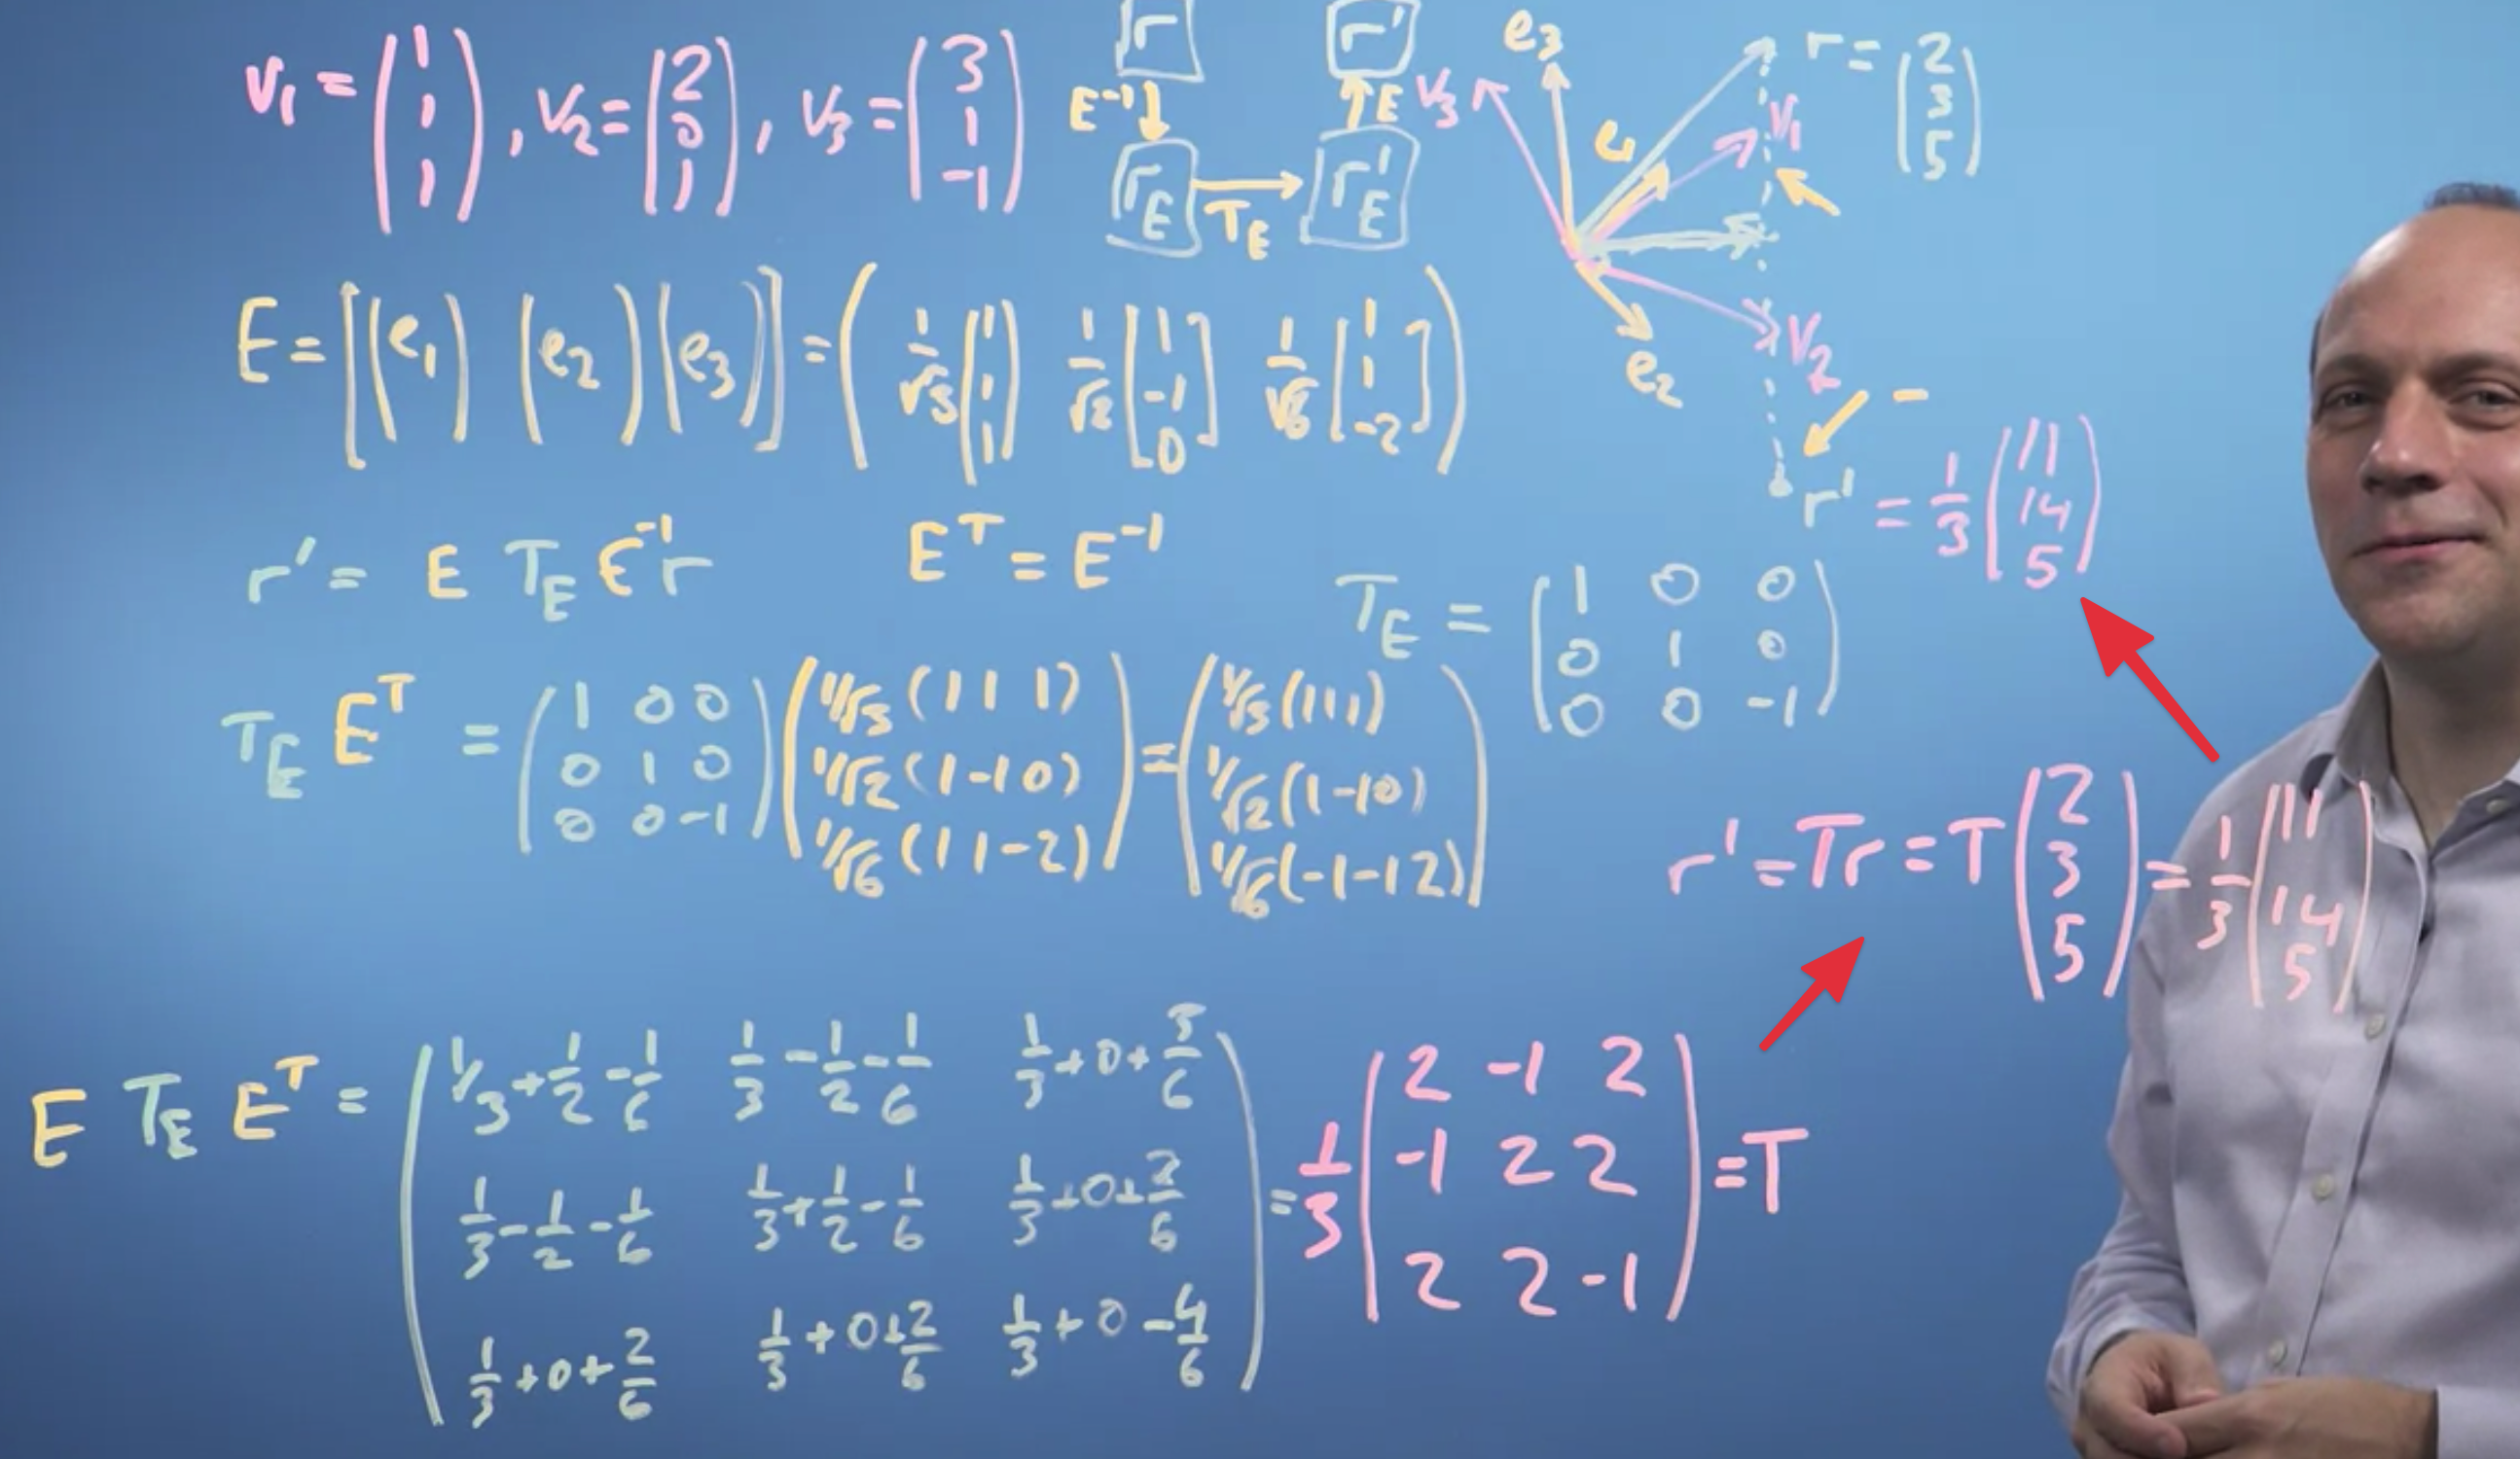 v₁ = (1 1 1), v₂ = (2 0 1), v₃ = (3 1 -1)
r
r'
E⁻¹
E
r_E
T_E
r'_E
e₃
v₃
e₁
v₁
r = (2 3 5)
e₂
v₂
-
r' = 1/3 (11 14 5)
E = [(e₁) (e₂) (e₃)] = (1/√3 (1 1 1) 1/√2 [1 -1 0] 1/√6 [1 1 -2])
r' = E T_E E⁻¹ r
Eᵀ = E⁻¹
T_E = (1 0 0
0 1 0
0 0 -1)
T_E Eᵀ = (1 0 0
0 1 0
0 0 -1) (1/√3 (1 1 1)
1/√2 (1 -1 0)
1/√6 (1 1 -2)) = (1/√3 (1 1 1)
1/√2 (1 -1 0)
1/√6 (-1 -1 2))
r' = Tr = T (2 3 5) = 1/3 (11 14 5)
E T_E Eᵀ = (1/3 + 1/2 - 1/6 1/3 - 1/2 - 1/6 1/3 + 0 + /6
1/3 - 1/2 - 1/6 1/3 + 1/2 - 1/6 1/3 + 0 + 2/6
1/3 + 0 + 2/6 1/3 + 0 + 2/6 1/3 + 0 - 4/6) = 1/3 (2 -1 2
-1 2 2
2 2 -1) = T